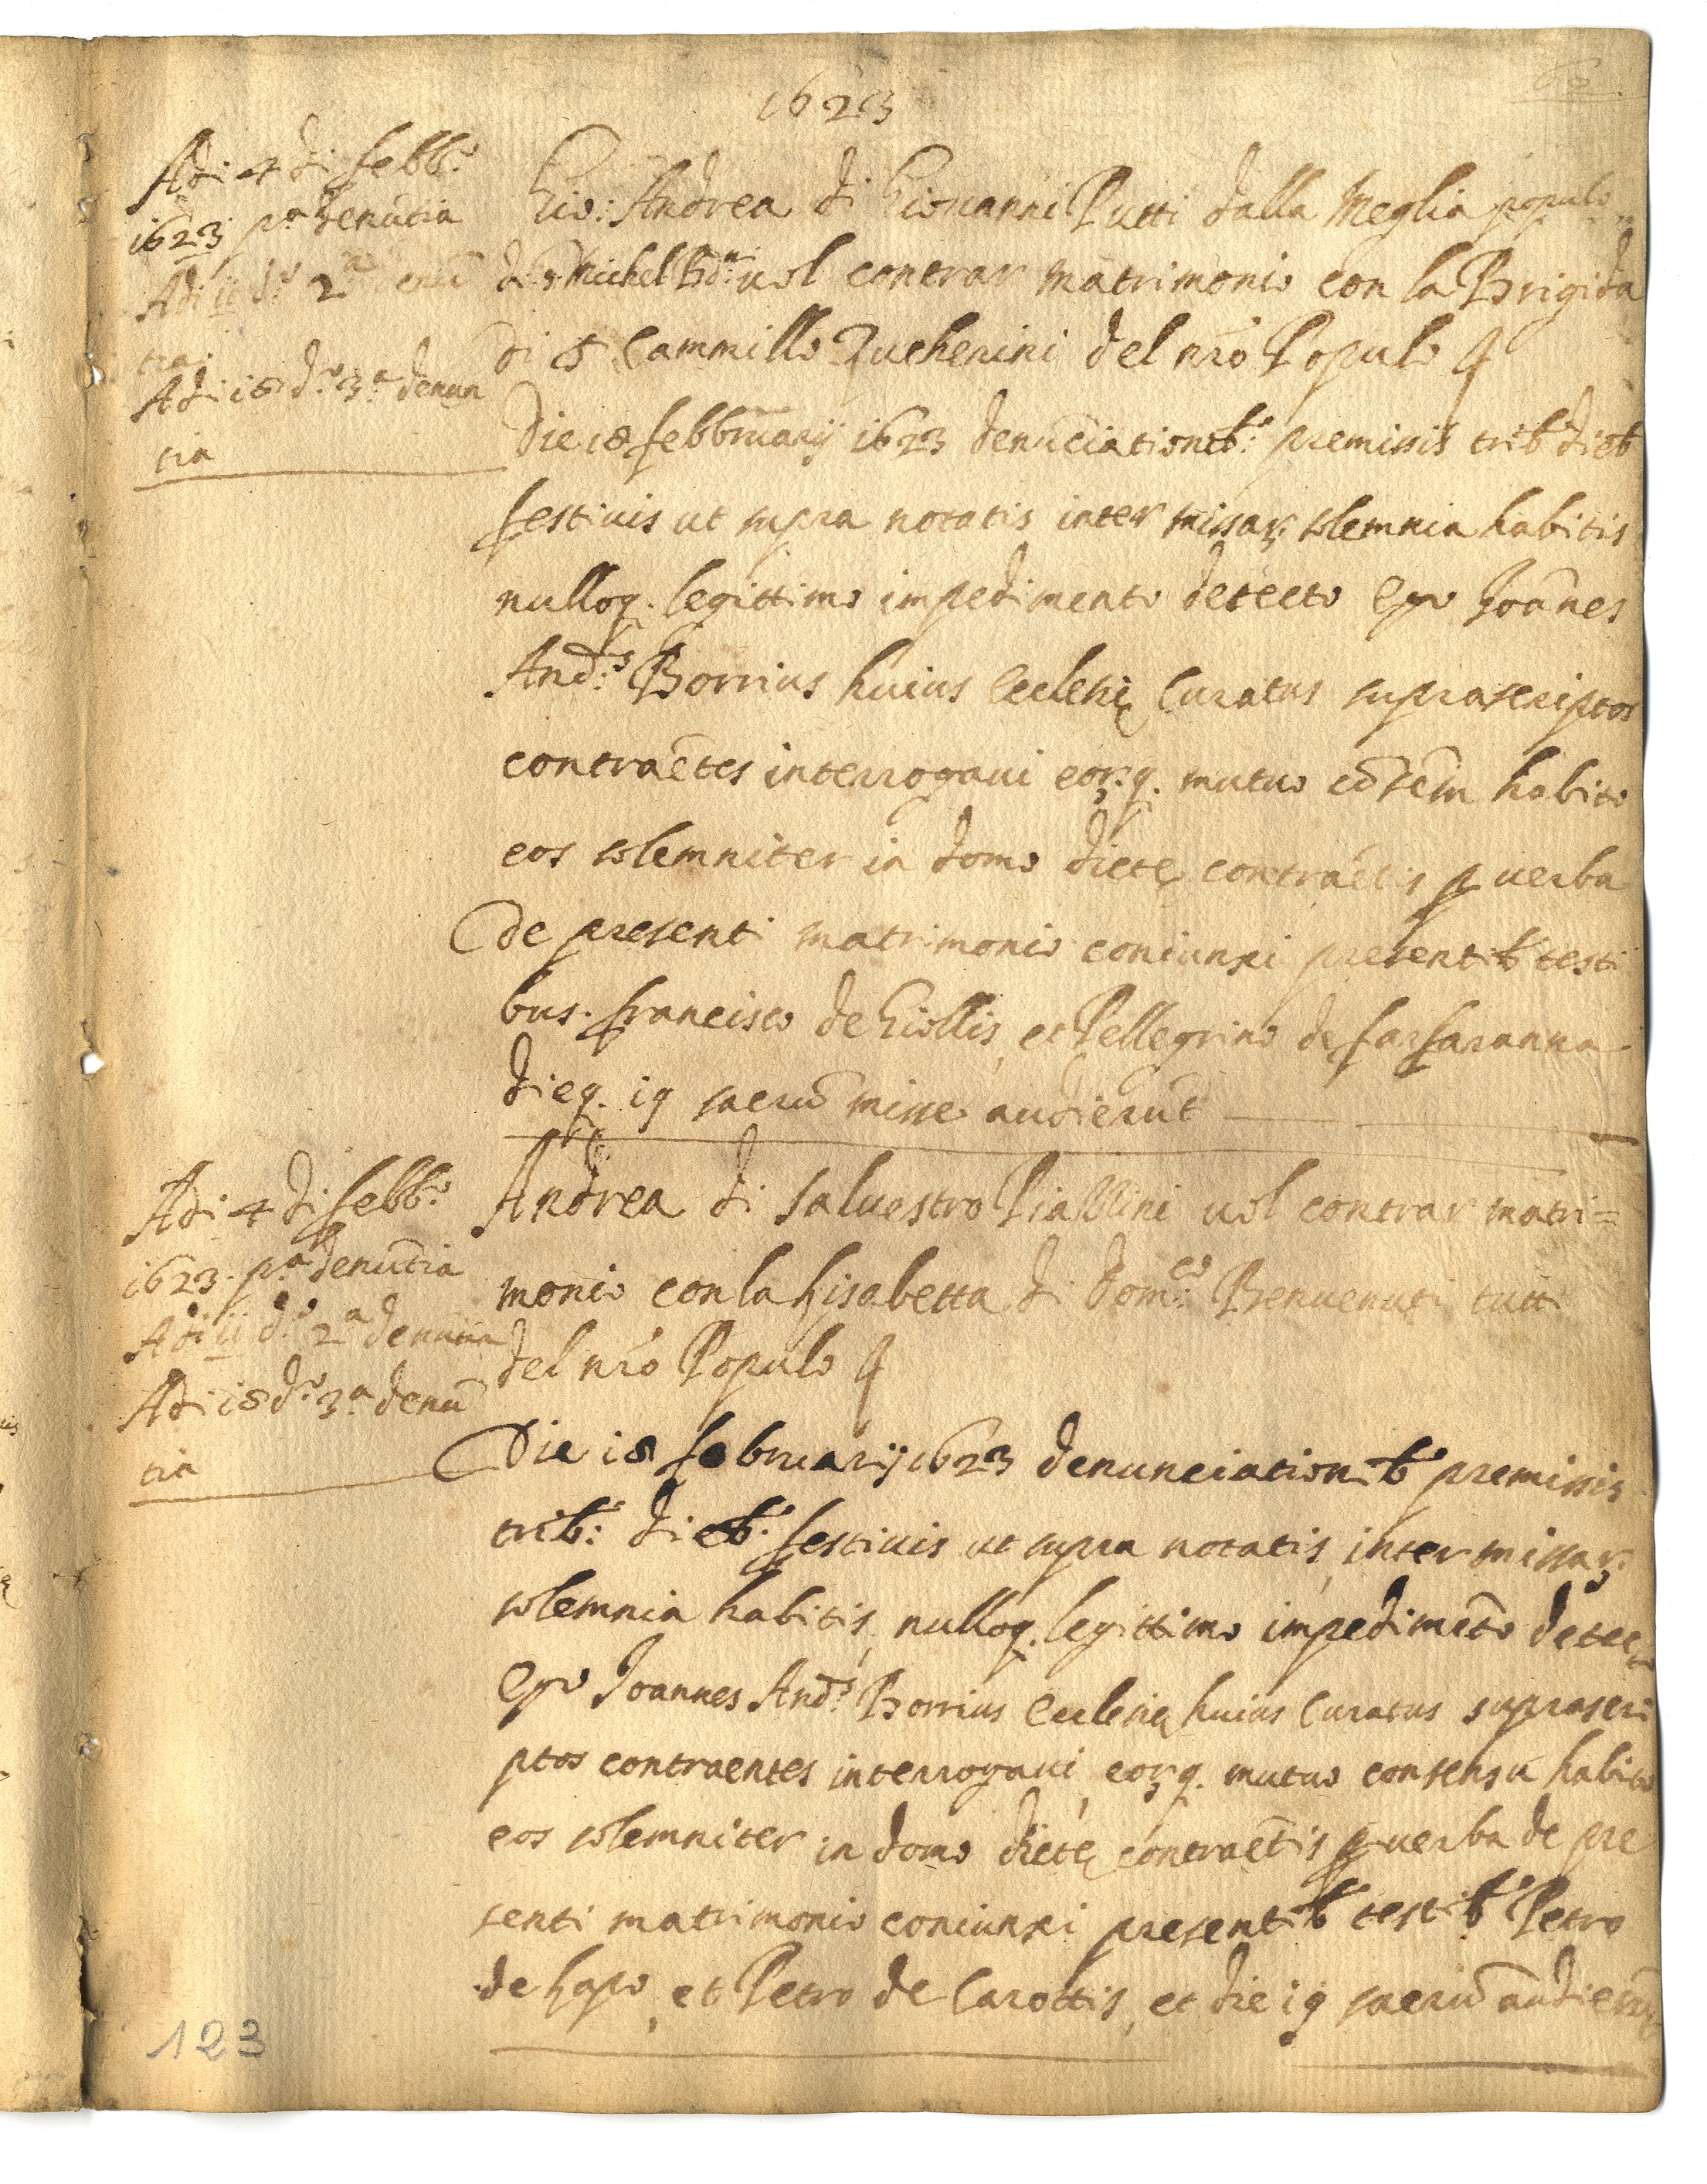 60
1623
Adi 4 di febb.o
1623 p.a denũtia
Adi ii d.o 2.a denũ
tia
Adi i8 d.o 3.a denun
tia
Gio: Andrea di Giouanni Putti dalla Meglia populo
di S. Michel uol contrar matrimonio con la Brigida
di Cammillo Zucherini del nr̃o Populo
Die i8 febbruarij 1623 denũciationib: premissis trib dieb
festiuis ut supra notatis inter missar; solemnia habitis
nulloq. legittimo impedimento detecto ego Joãnes
And:s Borrius huius ecclesię Curatus suprascriptos
contraẽtes interrogaui eor;q. mutuo cõsẽsu habito
eos solemniter in domo dictę contraẽtis p uerba
de presenti matrimonio coniunxi presentib testi
bus. francisco de Giollis, et Pellegrino de farfaranna.
dieq. i9 sacrũ misse audierũt
Adi 4 di febb.o
1623. p.a denũtia
Adi ii d.o 2.a denũtia
Adi i8 d.o 3.a denũ
tia
Andrea di Saluestro uol contrar matri=
monio con la Lisabetta di Dom:co Benuenuti tutti
del nr̃o Populo
Die i8 februarij 1623 denunciationib premissis
trib: dieb. festiuis ut supra notatis, inter missar;
solemnia habitis, nulloq. legittimo impedimẽto detec
ego Joannes And:s Borrius ecclesię huius Curatus suprascri
ptos contraentes interrogaui, eor;q. mutuo consensu habito
eos solemniter in domo dictę contraẽtis p uerba de pre
senti matrimonio coniunxi presentib testib. Petro
de et Petro de Carottis, et die i9 sacrũ audierũt
123